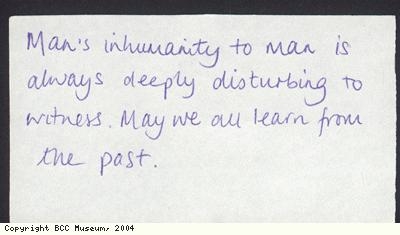 Man's inhumanity to man is
always deeply disturbing to
witness. May we all learn from
the past.
Copyright BCC Museum, 2004